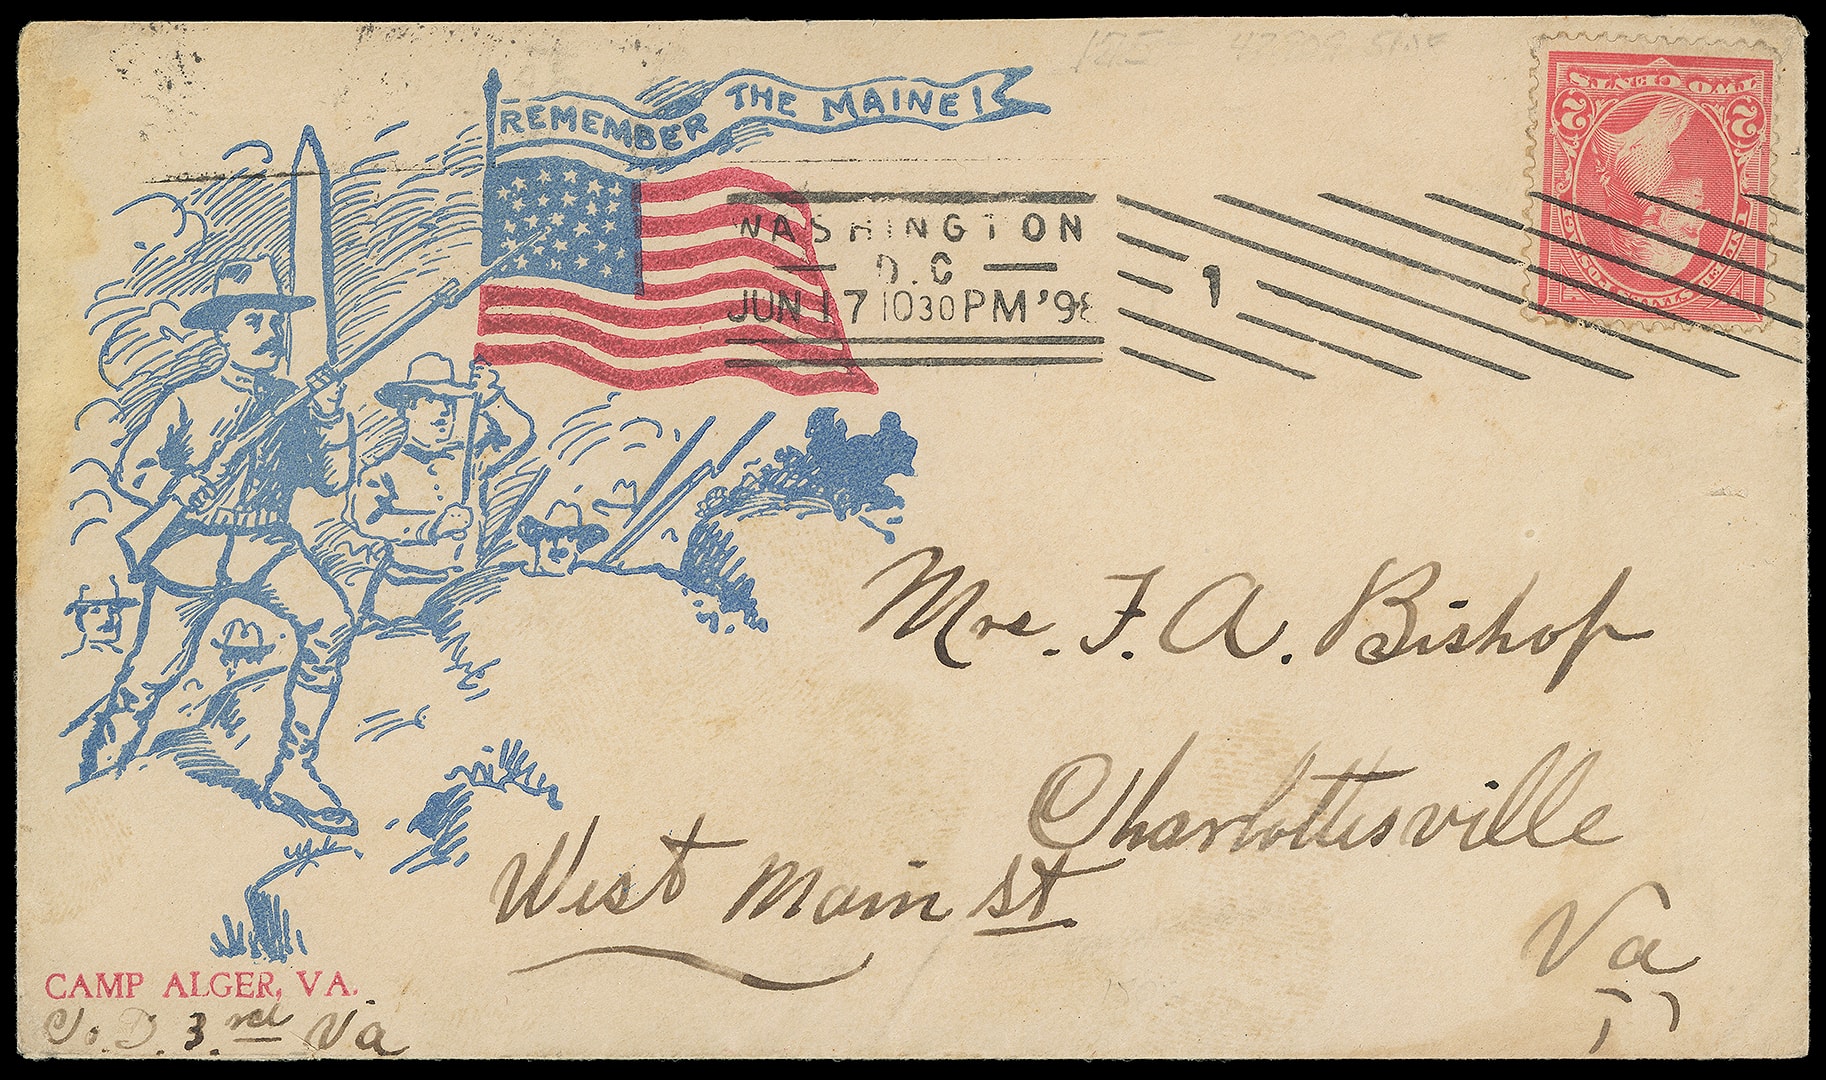 REMEMBER THE MAINE!
WASHINGTON
D.C
JUN 17 1030PM '98
1
TWO CENTS
2 2
Mrs. F. A. Bishop
Charlottesville
West Main St
Va
CAMP ALGER, VA.
Co. D. 3rd Va